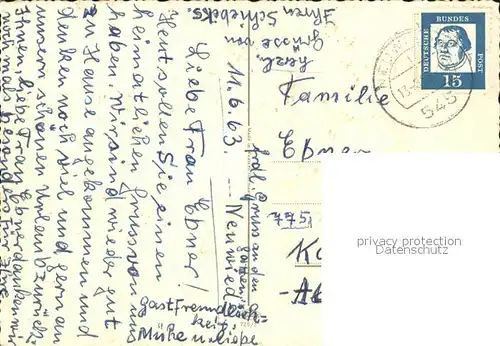 11.6.63 -- Neuwied
Liebe Frau Ebner!
Heut sollen Sie einen
heimatlichen Gruss von uns
haben. Wir sind wieder gut
zu Hause angekommen und
denken noch viel und gern an
unsern schönen Urlaub zurück.
Ihnen, liebe Frau Ebner danken wir
noch mal besonders für Ihre
Gastfreundlich-
keit,
Mühe u. Liebe
frdl. Gruss an den
Gatten.
herzl.
Grüsse von
Ihren Schlebeks.
Familie
Ebner
775
DEUTSCHE BUNDES POST
15
545
privacy protection
Datenschutz